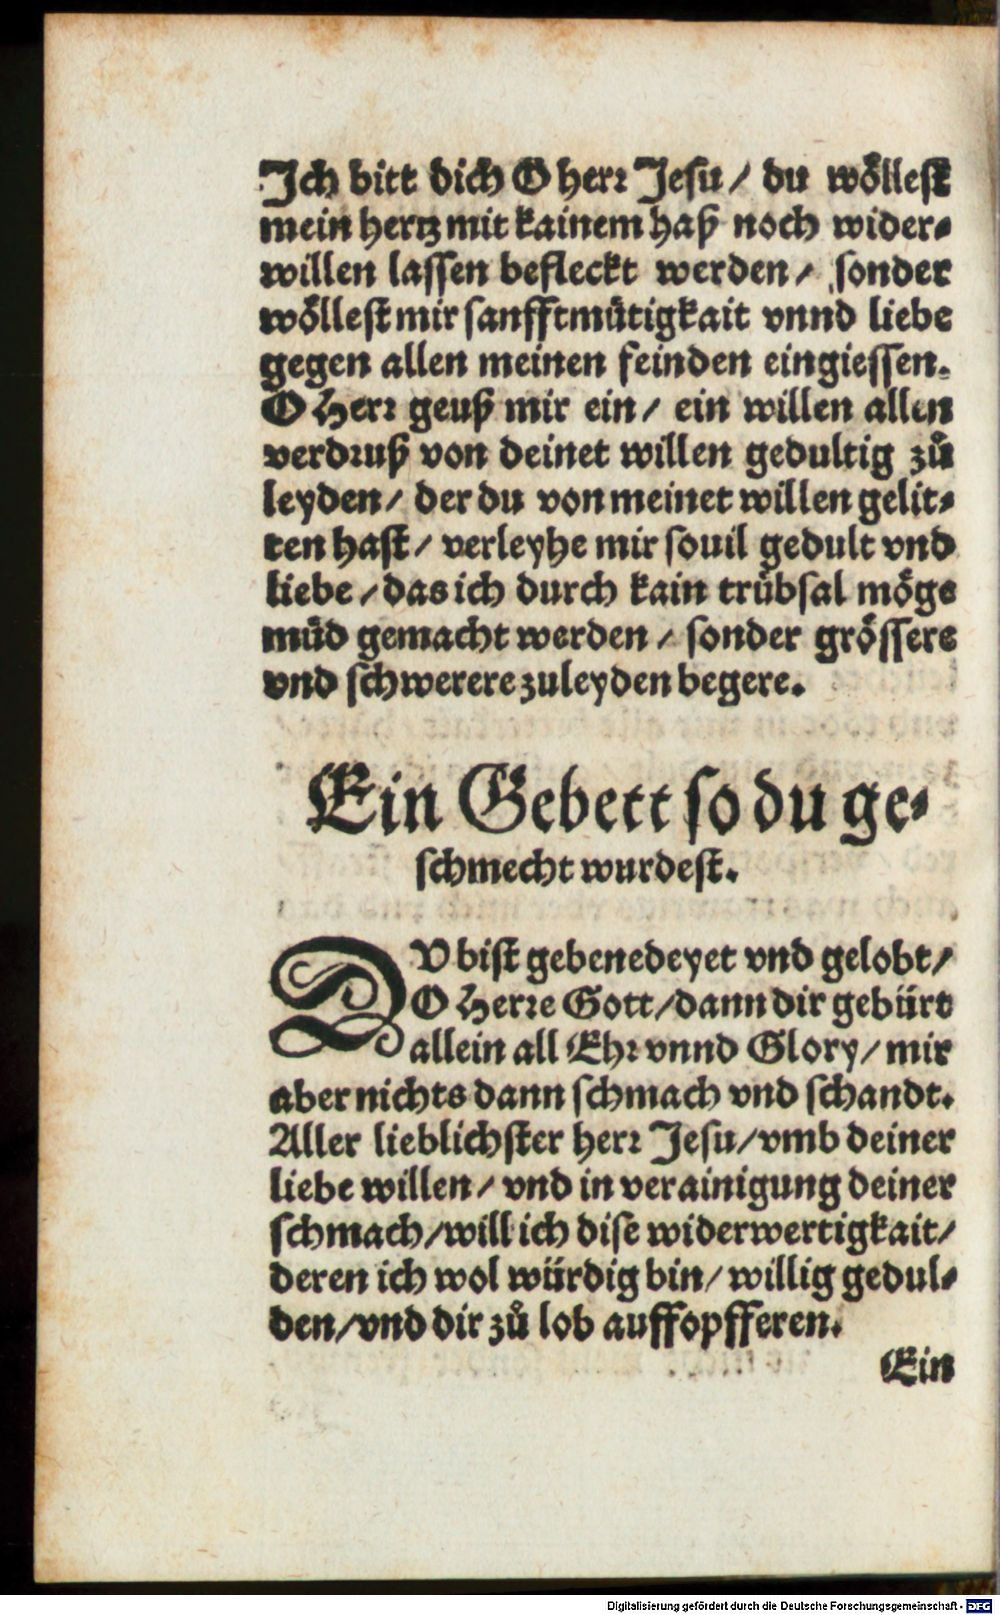 Ich bitt dich O herr Jesu / du wöllest
mein hertz mit kainem haß noch wider-
willen lassen befleckt werden / sonder
wöllest mir sanfftmütigkait vnnd liebe
gegen allen meinen feinden eingiessen.
O Herr geuß mir ein / ein willen allen
verdruß von deinet willen gedultig zů
leyden / der du von meinet willen gelit-
ten hast / verleyhe mir souil gedult vnd
liebe / das ich durch kain trübsal möge
müd gemacht werden / sonder grössere
vnd schwerere zuleyden begere.
Ein Gebett so du ge-
schmecht wurdest.
DV bist gebenedeyet vnd gelobt /
O Herre Gott / dann dir gebürt
allein all Ehr vnnd Glory / mir
aber nichts dann schmach vnd schandt.
Aller lieblichster herr Jesu / vmb deiner
liebe willen / vnd in verainigung deiner
schmach / will ich dise widerwertigkait /
deren ich wol würdig bin / willig gedul-
den / vnd dir zů lob auffopfferen.
Ein
Digitalisierung gefördert durch die Deutsche Forschungsgemeinschaft - DFG